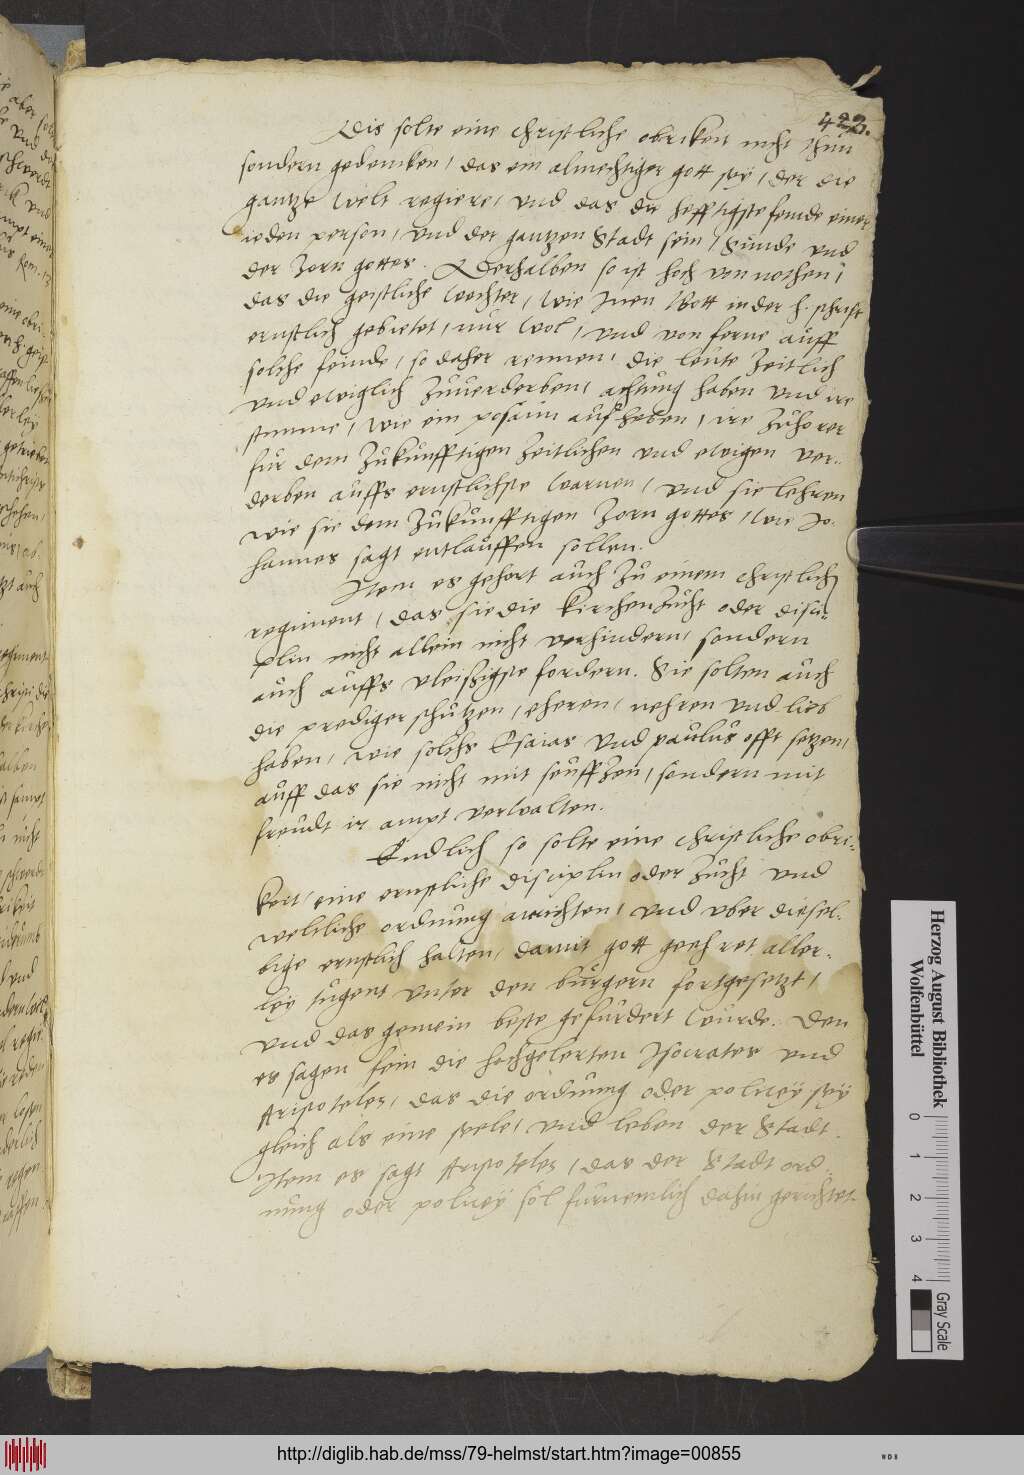 422.
Dis solte eine christliche obrikeit nicht thun
sondern gedencken, das ein almechtiger gott sey, der die
gantze welt regiere, und das die hefftigste feinde einer
ieden person, und der gantzen Stadt sein, Sunde und
der zorn gottes. Derhalben so ist hoch von nothen,
das die geistliche wechter, wie inen Gott in der h. schrifft
ernstlich gebietet, nur wol, und von ferne auff
solche feinde, so daher rennen, die leute zeitlich
und ewiglich zuuerderben, achtung haben und ire
stimme, wie ein posaun auffheben, ire zuhorer
fur dem zukunfftigen zeitlichen und ewigen ver-
derben auffs ernstlichste warnen, und sie lehren
wie sie dem zukunfftigen zorn gottes, wie Jo-
hannes sagt entlauffen sollen.
Item es gehort auch zu einem christlich
regiment, das sie die kirchenzucht oder disci-
plin nicht allein nicht verhindern, sondern
auch auffs vleißigste fordern. Sie solten auch
die prediger schutzen, eheren, nehren und lieb
haben, wie solchs Esaias und paulus offt setzen,
auff das sie nicht mit seuffzen, sondern mit
freudt ir ampt verwalten.
Endlich so solte eine christliche obri-
keit, eine ernstliche disciplin oder zucht und
weltliche ordnung anrichten, und uber diesel-
bige ernstlich halten, damit gott geehret aller-
ley tugent unter den burgern fortgesetzt,
und das gemein beste gefurdert wurde. Den
es sagen fein die hochgelerten Isocrates und
Aristoteles, das die ordnung oder policey sey
gleich als eine seele, und leben der Stadt.
Item es sagt Aristoteles, das der Stadt ord-
nung oder policey sol furnemlich dahin gerichtet
Herzog August Bibliothek
Wolfenbüttel
0 1 2 3 4
Gray Scale
http://diglib.hab.de/mss/79-helmst/start.htm?image=00855